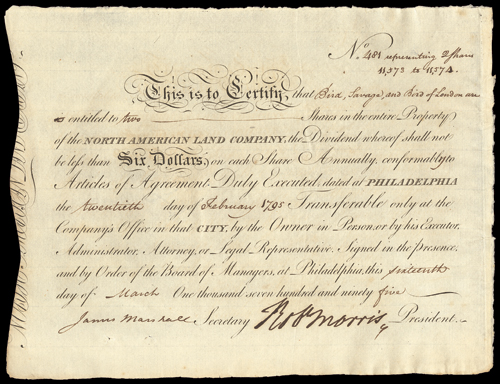 No. 481 representing 2 Shares
11,573 to 11,574.
This is to Certify, that Bird, Savage, and Bird of London are
entitled to two Shares in the entire Property
of the NORTH AMERICAN LAND COMPANY, the Dividend whereof shall not
be less than Six Dollars, on each Share Annually, conformably to
Articles of Agreement Duly Executed, dated at PHILADELPHIA
the twentieth day of February 1795 Transferable only at the
Company's Office in that CITY, by the Owner in Person, or by his Executor,
Administrator, Attorney, or Legal Representative. Signed in the presence,
and by Order of the Board of Managers, at Philadelphia, this sixteenth
day of March One thousand seven hundred and ninety five
James Marshall Secretary Robt Morris President.